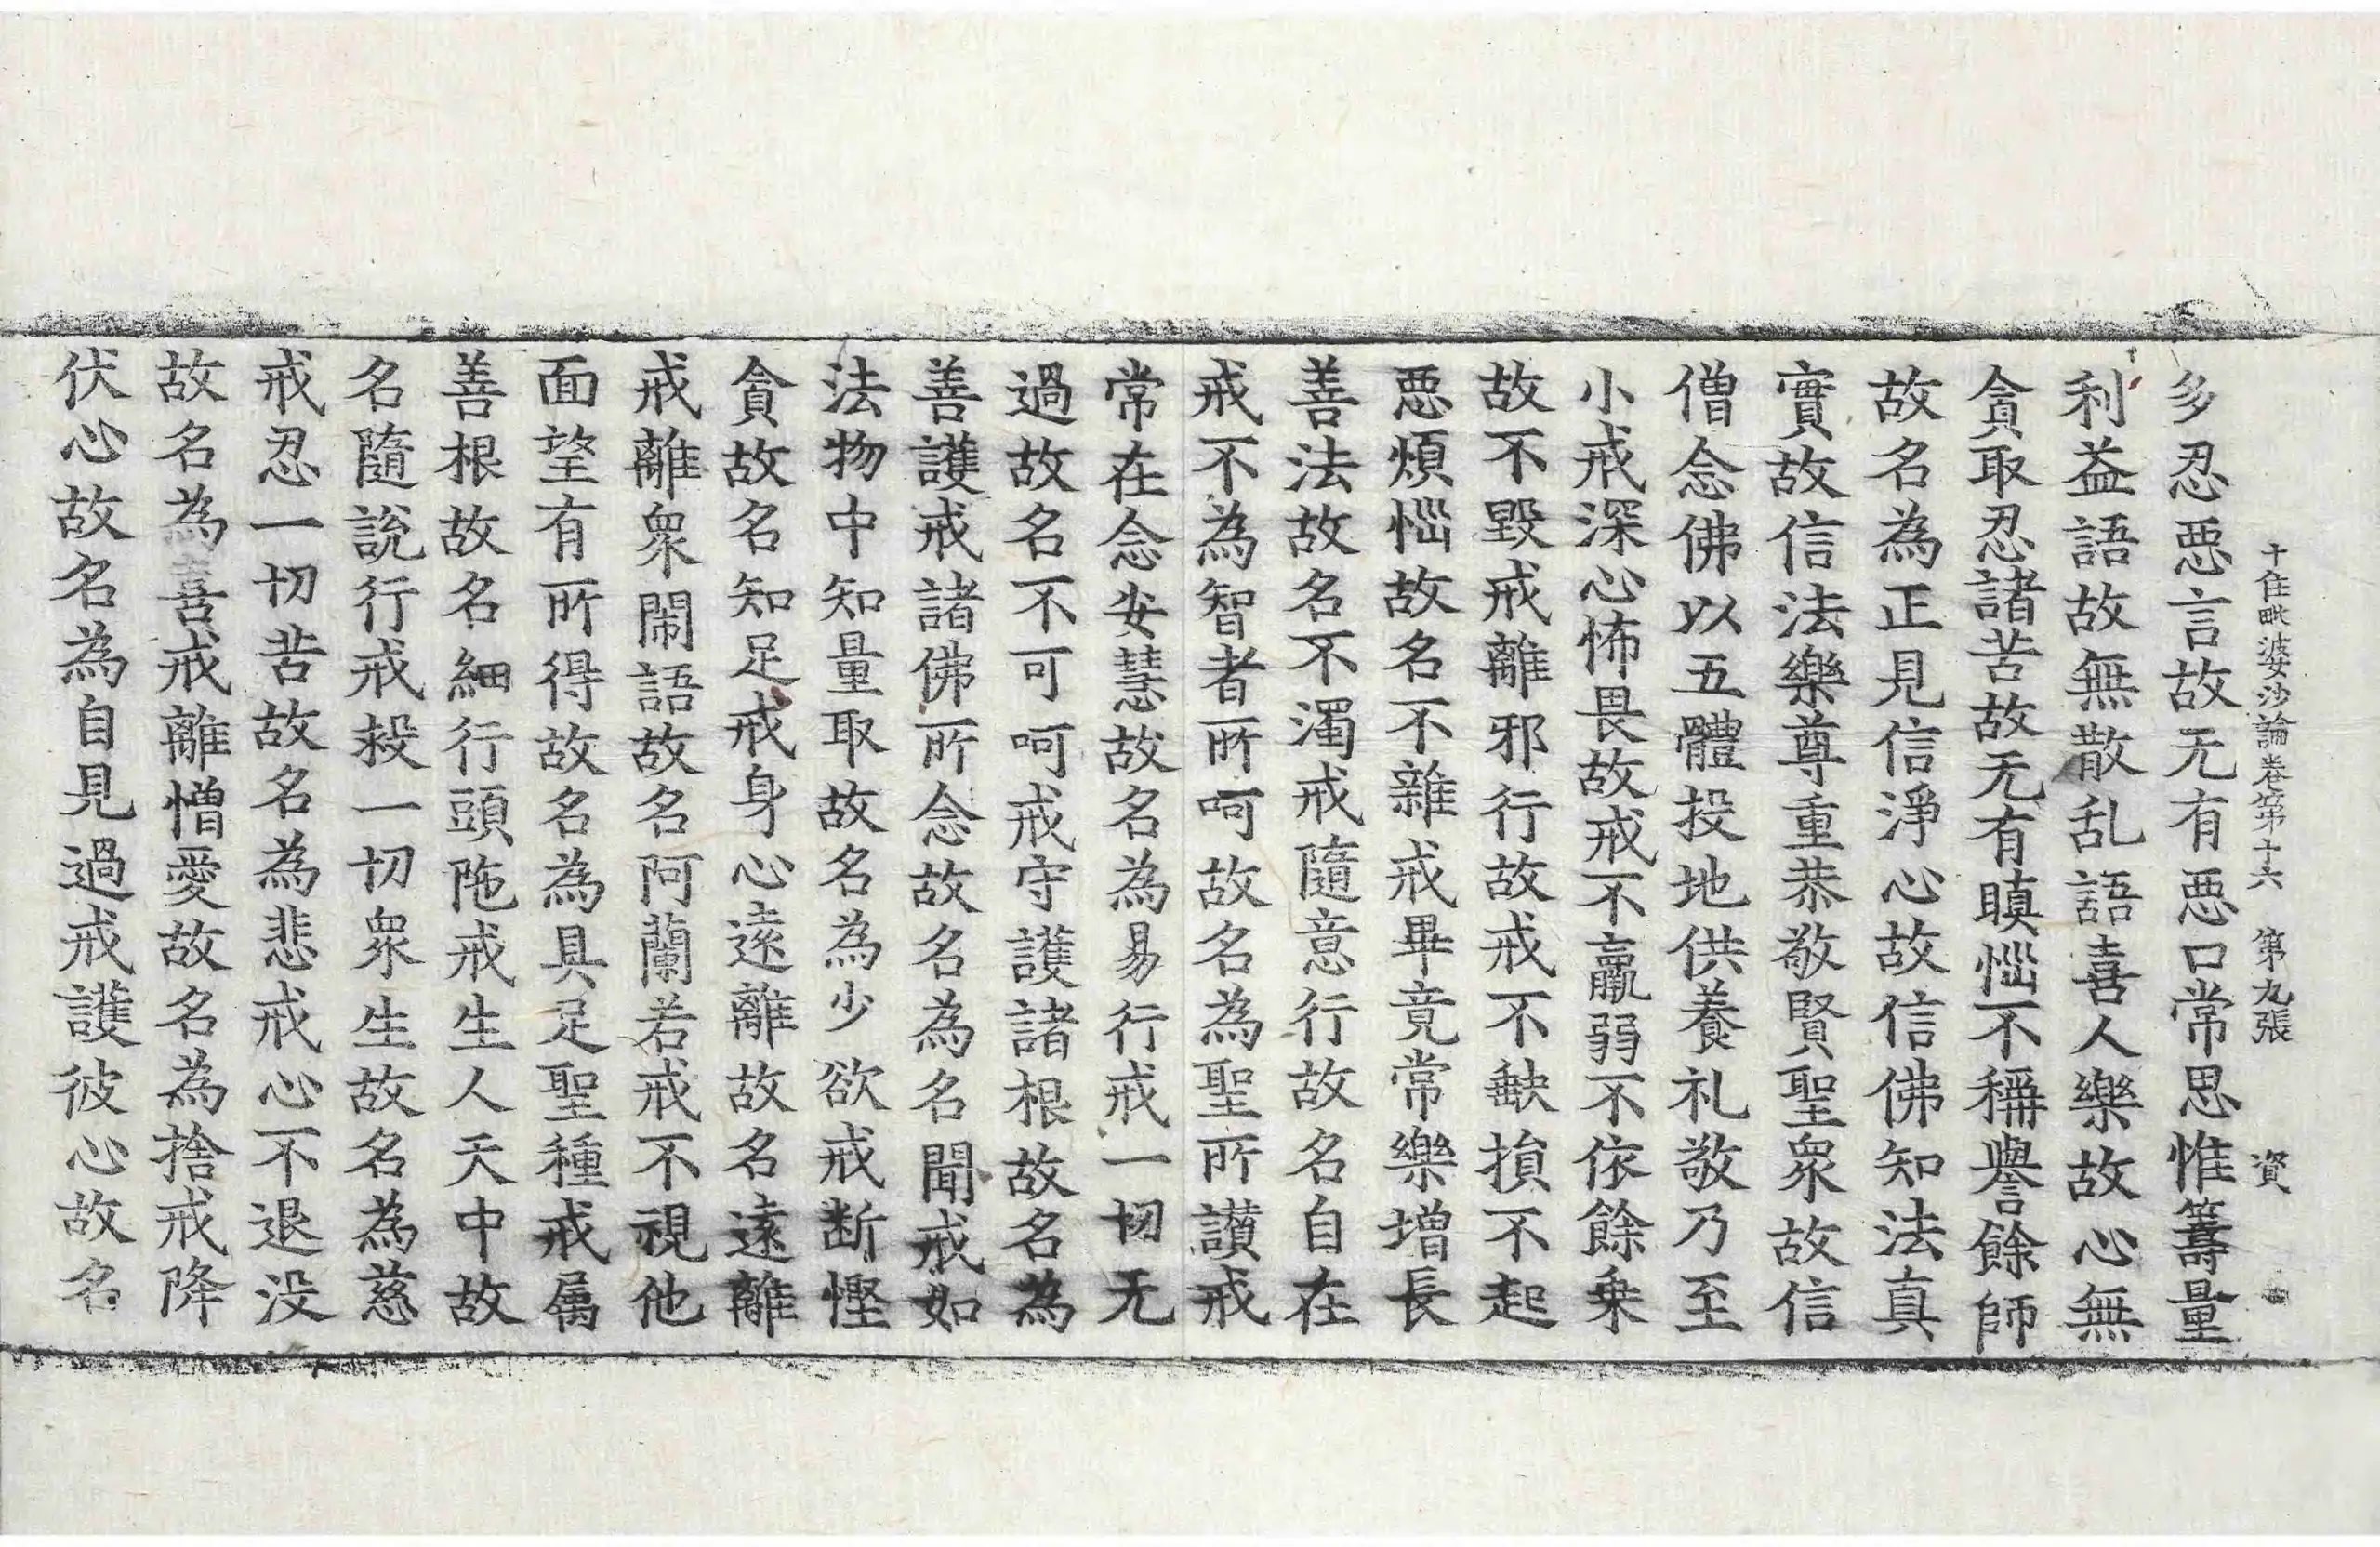 十住毗婆沙論卷第十六　第九張　資
多忍惡言故无有惡口常思惟籌量
利益語故無散乱語喜人樂故心無
貪取忍諸苦故无有瞋惱不稱譽餘師
故名為正見信淨心故信佛知法真
實故信法樂尊重恭敬賢聖衆故信
僧念佛以五體投地供養礼敬乃至
小戒深心怖畏故戒不羸弱不依餘乗
故不毀戒離邪行故戒不缺損不起
惡煩惱故名不雜戒畢竟常樂增長
善法故名不濁戒隨意行故名自在
戒不為智者所呵故名為聖所讃戒
常在念安慧故名為易行戒一切无
過故名不可呵戒守護諸根故名為
善護戒諸佛所念故名為名聞戒如
法物中知量取故名為少欲戒断慳
貪故名知足戒身心遠離故名遠離
戒離衆閙語故名阿蘭若戒不視他
面望有所得故名為具足聖種戒属
善根故名細行頭陁戒生人天中故
名隨說行戒救一切衆生故名為慈
戒忍一切苦故名為悲戒心不退没
故名為喜戒離憎愛故名為捨戒降
伏心故名為自見過戒護彼心故名